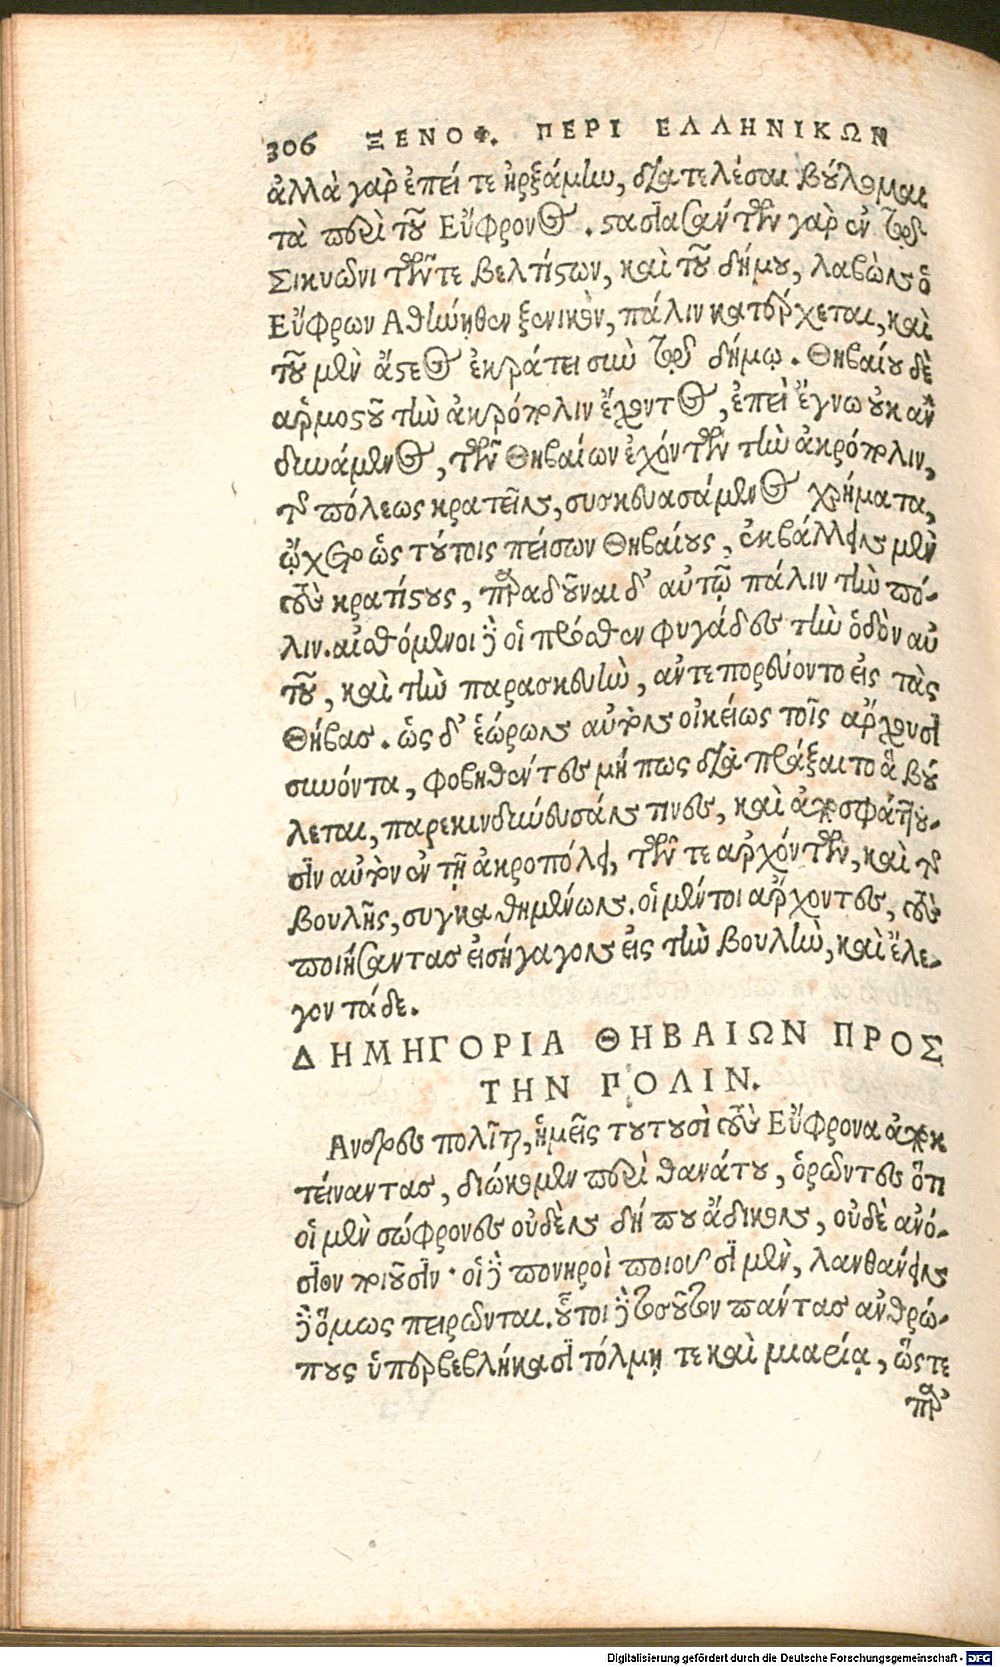 306 ΞΕΝΟΦ. ΠΕΡΙ ΕΛΛΗΝΙΚΩΝ
ἀλλὰ γὰρ ἐπεί τε ἠρξάμην, διατελέσαι βούλομαι
τὰ περὶ τοῦ Εὔφρονος. στασιασάντων γὰρ ἐν τῷ
Σικυῶνι τῶν τε βελτίστων, καὶ τοῦ δήμου, λαβὼν ὁ
Εὔφρων Ἀθήνηθεν ξενικὸν, πάλιν κατέρχεται, καὶ
τοῦ μὲν ἄστεος ἐκράτει σὺν τῷ δήμῳ. Θηβαίου δὲ
ἁρμοστοῦ τὴν ἀκρόπολιν ἔχοντος, ἐπεὶ ἔγνω οὐκ ἂν
δυνάμενος, τῶν Θηβαίων ἐχόντων τὴν ἀκρόπολιν,
τῆς πόλεως κρατεῖν, συσκευασάμενος χρήματα,
ᾤχετο ὡς τούτοις πείσων Θηβαίους, ἐκβάλλειν μὲν
τοὺς κρατίστους, παραδοῦναι δ' αὐτῷ πάλιν τὴν πό-
λιν. αἰσθόμενοι δὲ οἱ πρόσθεν φυγάδες τὴν ὁδὸν αὐ
τοῦ, καὶ τὴν παρασκευὴν, ἀντεπορεύοντο εἰς τὰς
Θήβας. ὡς δ' ἑώρων αὐτὸν οἰκείως τοῖς ἄρχουσι
συνόντα, φοβηθέντες μή πως διαπράξαιτο ἃ βού
λεται, παρεκινδύνευσάν τινες, καὶ ἀποσφάττου-
σιν αὐτὸν ἐν τῇ ἀκροπόλει, τῶν τε ἀρχόντων, καὶ τῆς
βουλῆς, συγκαθημένων. οἱ μέντοι ἄρχοντες, τοὺς
ποιήσαντας εἰσήγαγον εἰς τὴν βουλὴν, καὶ ἔλε-
γον τάδε.
ΔΗΜΗΓΟΡΙΑ ΘΗΒΑΙΩΝ ΠΡΟΣ
ΤΗΝ ΠΟΛΙΝ.
Ανδρες πολῖται, ἡμεῖς τουτουσὶ τοὺς Εὔφρονα ἀποκ
τείναντας, διώκομεν περὶ θανάτου, ὁρῶντες ὅτι
οἱ μὲν σώφρονες οὐδὲν δή που ἄδικον, οὐδὲ ἀνό-
σιον ποιοῦσιν· οἱ δὲ πονηροὶ ποιοῦσι μὲν, λανθάνειν
δὲ ὅμως πειρῶνται. οὗτοι δὲ τοσοῦτον πάντας ἀνθρώ-
πους ὑπερβεβλήκασι τόλμῃ τε καὶ μιαρίᾳ, ὥστε
παρ'